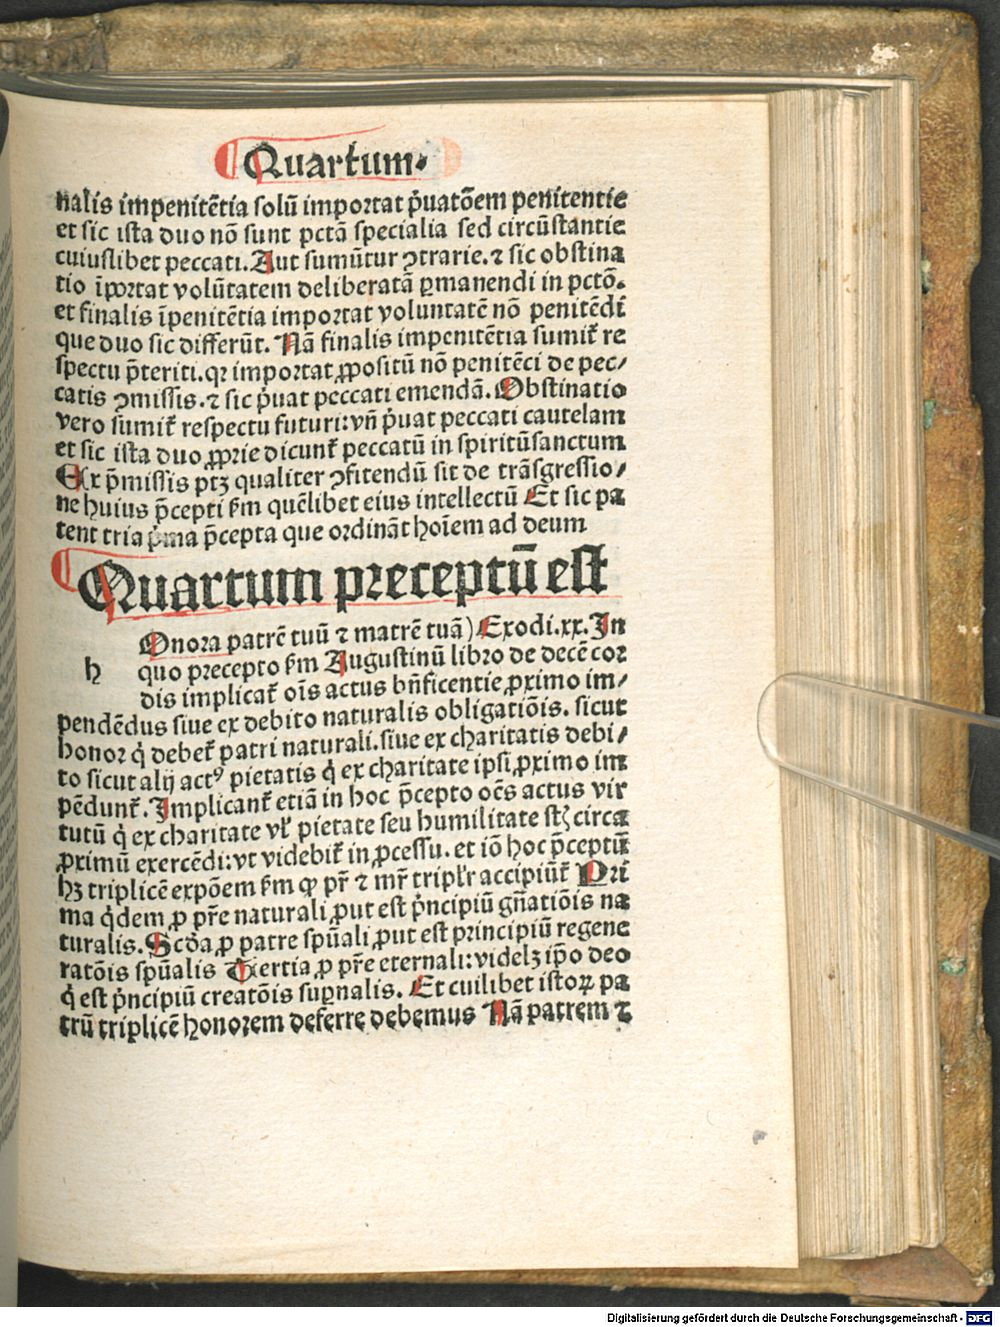 Quartum.
nalis impenitētia solū importat p̄uatōem penitentie
et sic ista duo nō sunt pctā specialia sed circūstantie
cuiuslibet peccati. Aut sumūtur ꝯtrarie. ⁊ sic obstina
tio īportat volūtatem deliberatā ꝑmanendi in pctō.
et finalis īpenitētia importat voluntatē nō penitēdi
que duo sic differūt. Nā finalis impenitētia sumit᷑ re
spectu p̄teriti. qꝛ importat ꝓpositū nō penitēci de pec/
catis ꝯmissis. ⁊ sic p̄uat peccati emendā. Obstinatio
vero sumit᷑ respectu futuri: vn̄ p̄uat peccati cautelam
et sic ista duo ꝓprie dicunt᷑ peccatū in spiritūsanctum
Ex p̄missis ptꝫ qualiter ꝯfitendū sit de trāsgressio/
ne huius p̄cepti ẜm quēlibet eius intellectū Et sic pa
tent tria p̄ma p̄cepta que ordināt hoīem ad deum
Quartum preceptū est
h Onora patrē tuū ⁊ matrē tuā) Exodi.xx. In
quo precepto ẜm Augustinū libro de decē cor
dis implicat᷑ oīs actus bn̄ficentie ꝓximo im/
pendēdus siue ex debito naturalis obligatiōis. sicut
honor q̇ debet᷑ patri naturali. siue ex charitatis debi/
to sicut alij actꝰ pietatis q̇ ex charitate ipsi ꝓximo im
pēdunt᷑. Implicant᷑ etiā in hoc p̄cepto oēs actus vir
tutū q̇ ex charitate vl̓ pietate seu humilitate st̄ circa
ꝓximū exercēdi: vt videbit᷑ in ꝓcessu. et iō hoc p̄ceptū
hꝫ triplicē expōem ẜm ꝙ pr̄ ⁊ mr̄ tripl̓r accipiūt᷑ Pri
ma q̇dem ꝓ pr̄e naturali ꝓut est p̄ncipiū gn̄atiōis na
turalis. Scd̄a ꝓ patre spūali ꝓut est principiū regene
ratōis spūalis Tertia ꝓ pr̄e eternali: videlꝫ ip̄o deo
q̇ est p̄ncipiū creatōis suꝑnalis. Et cuilibet istoꝝ pa
trū triplicē honorem deferre debemus Nā patrem ⁊
Digitalisierung gefördert durch die Deutsche Forschungsgemeinschaft - DFG